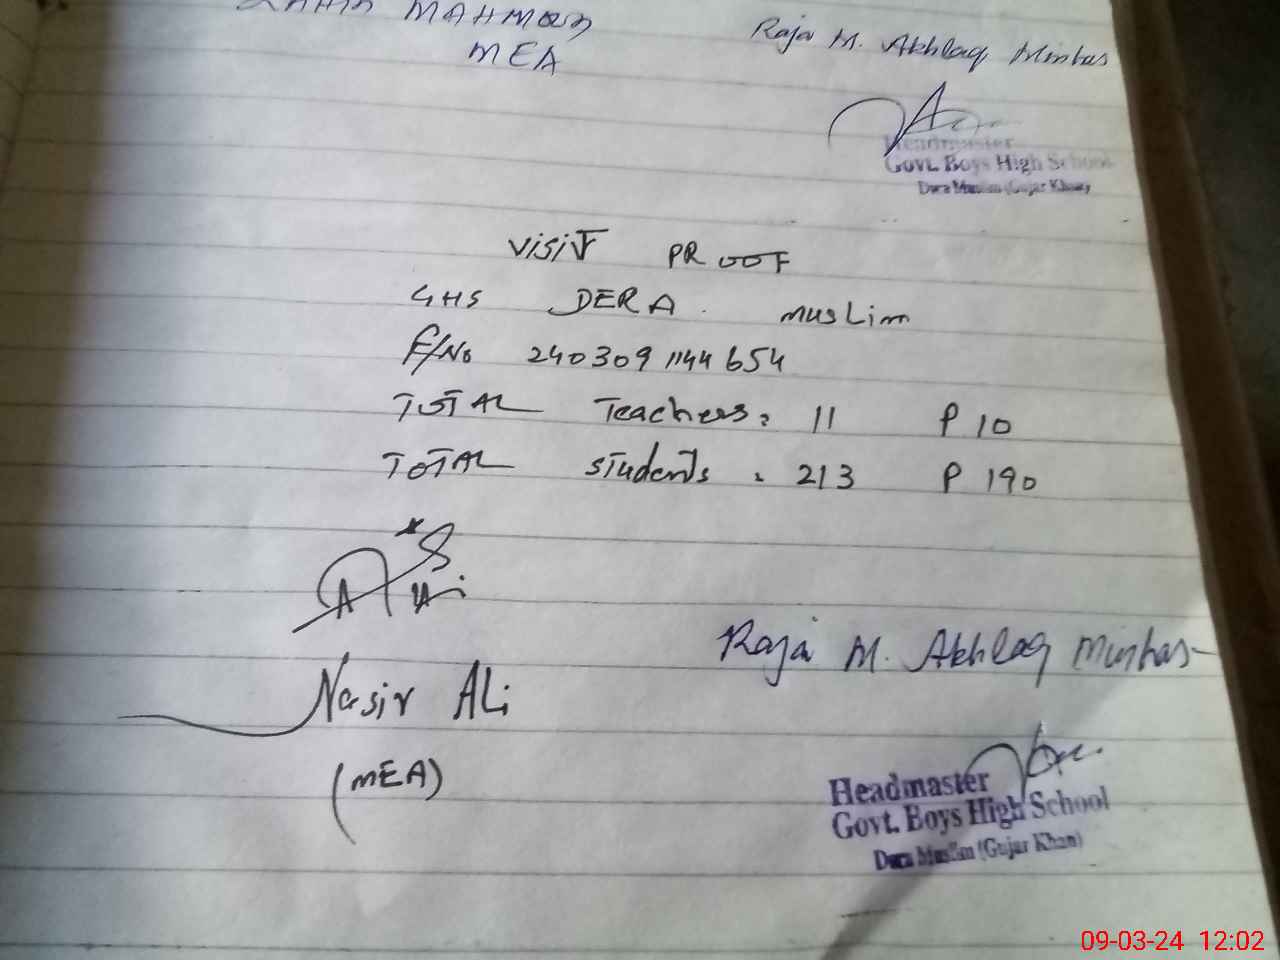 MAHMOOD
MEA
Raja M. Akhlaq Minhas
Headmaster
Govt. Boys High School
Dera Muslim (Gujar Khan)
VISIT PROOF
GHS DERA. MUSLim
F/No 2403091144654
TOTAL Teachers: 11 P 10
TOTAL Students: 213 P 190
Nasir ALi
(MEA)
Raja M. Akhlaq Minhas
Headmaster
Govt. Boys High School
Dera Muslim (Gujar Khan)
09-03-24 12:02